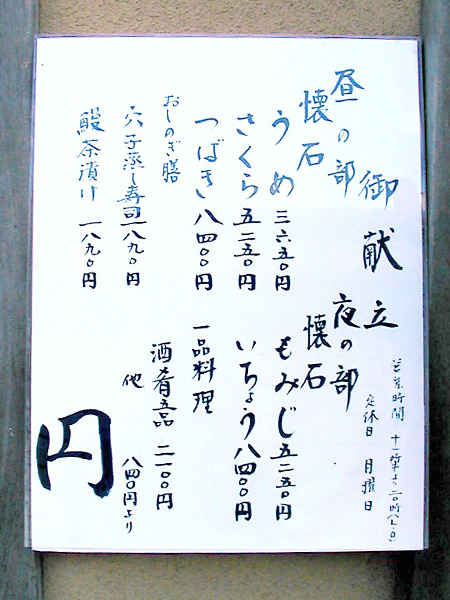 御献立
営業時間 十一時半より二〇時(L.O)
定休日 月曜日
昼の部
懐石
うめ 三六五〇円
さくら 五二五〇円
つばき 八四〇〇円
おしのぎ膳
穴子蒸し寿司 一八九〇円
鰻茶漬け 一八九〇円
夜の部
懐石
もみじ 五二五〇円
いちょう 八四〇〇円
一品料理
酒肴五品 二一〇〇円
他 八四〇円より
円